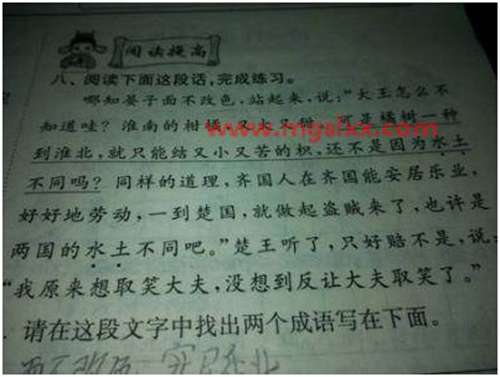 阅读提高
八、阅读下面这段话,完成练习。
哪知晏子面不改色,站起来,说:“大王怎么不
知道哇?淮南的柑橘,又大又甜,可是橘树一种
www.mgslkx.com
到淮北,就只能结又小又苦的枳,还不是因为水土
不同吗?同样的道理,齐国人在齐国能安居乐业,
好好地劳动,一到楚国,就做起盗贼来了,也许是
两国的水土不同吧。”楚王听了,只好赔不是,说
“我原来想取笑大夫,没想到反让大夫取笑了。”
请在这段文字中找出两个成语写在下面。